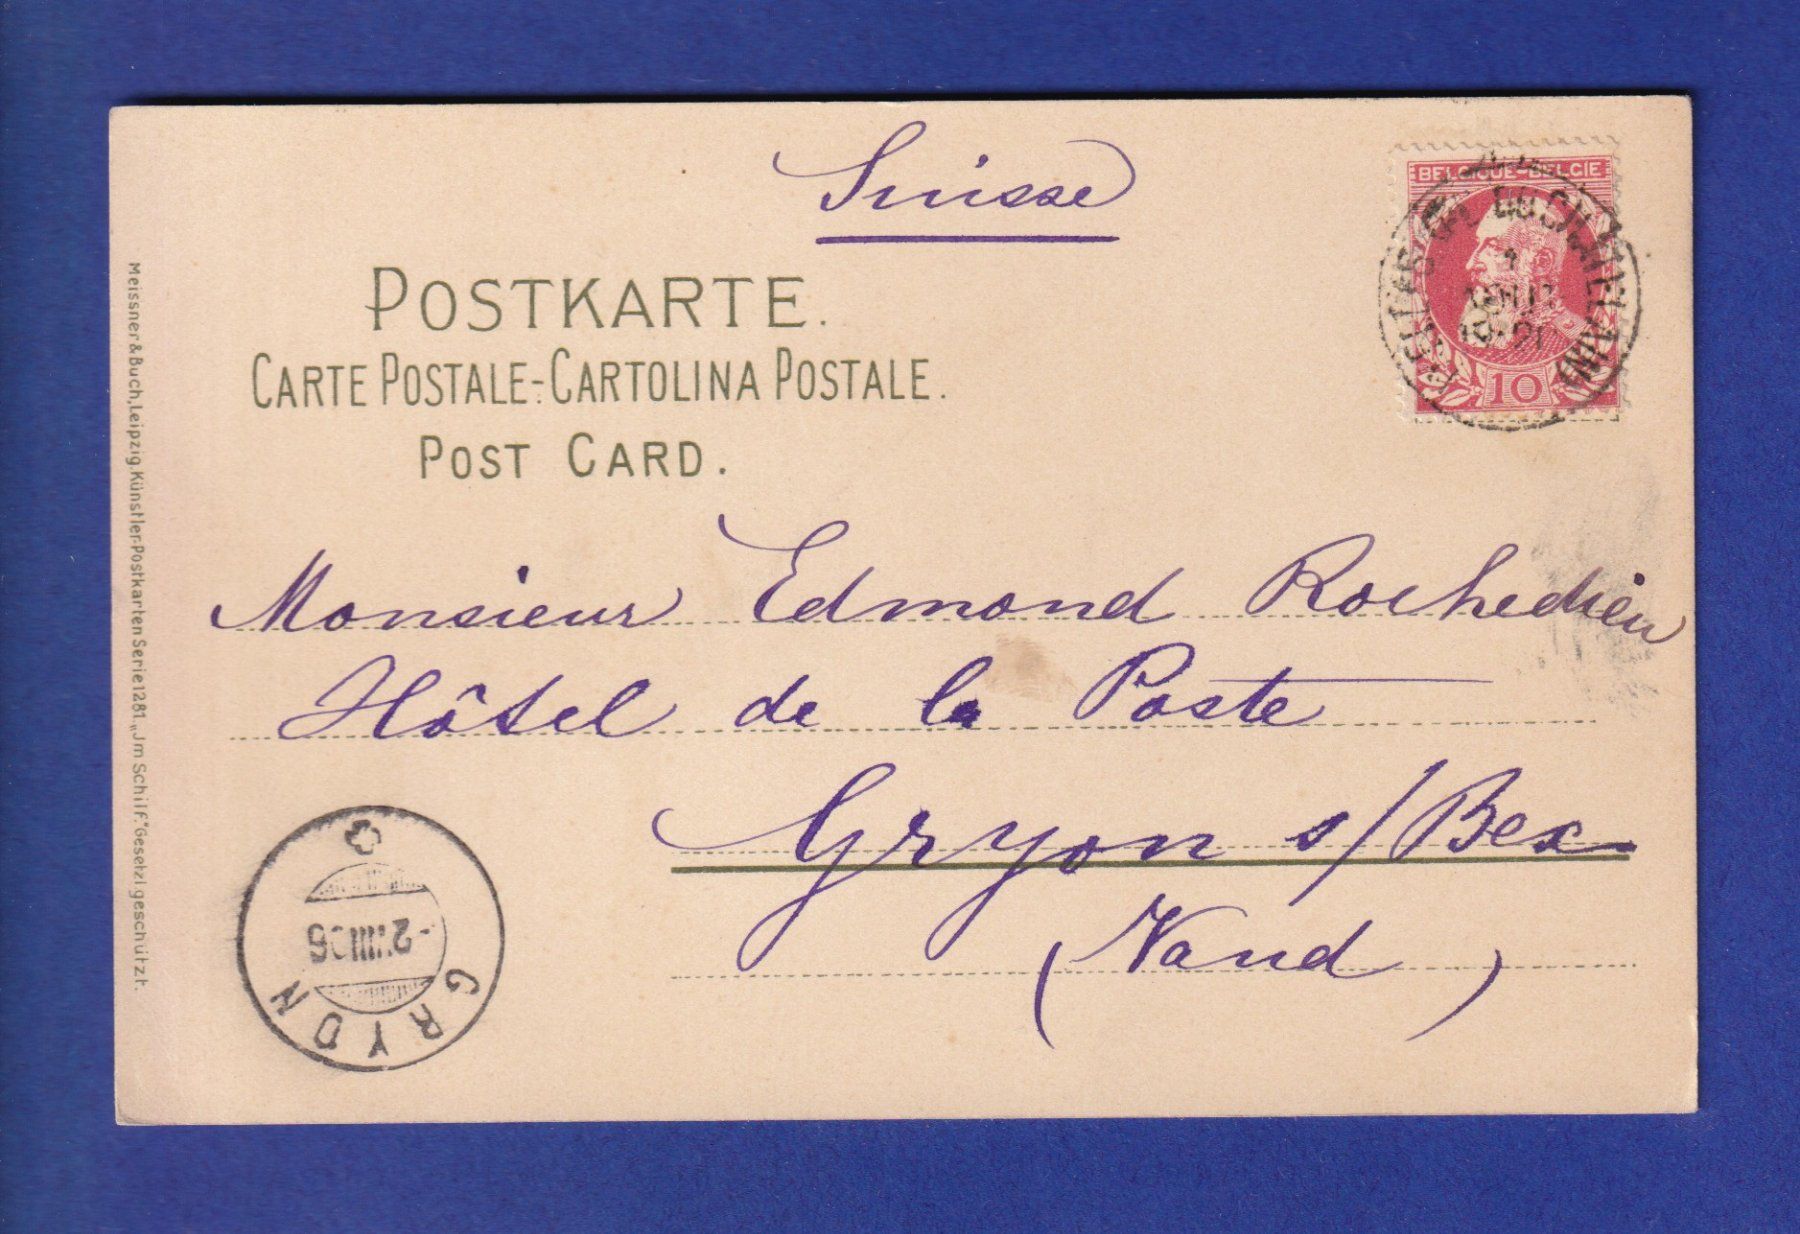 Suisse
BELGIQUE-BELGIE
10
POSTKARTE.
CARTE POSTALE-CARTOLINA POSTALE.
POST CARD.
Monsieur Edmond Rochedieu
Hôtel de la Poste
Gryon s/Bex
(Vaud)
GRYON
Meissner & Buch, Leipzig, Künstler-Postkarten Serie 1281 „Jm Schilf." Gesetzl geschützt.